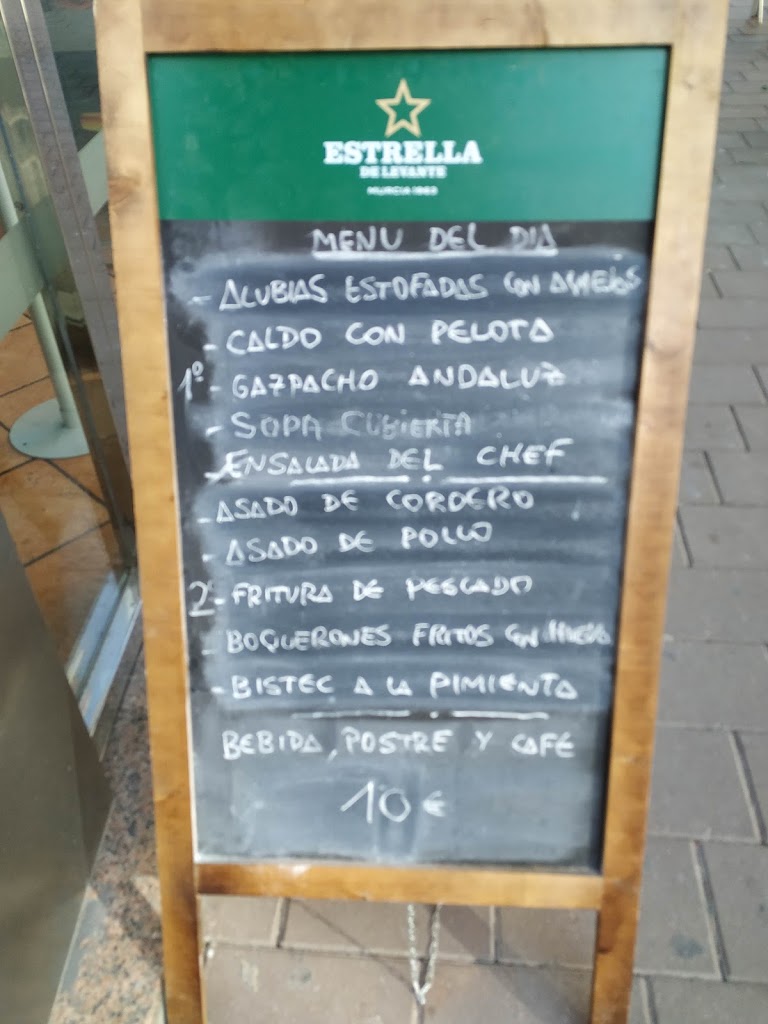 ESTRELLA
DE LEVANTE
MURCIA 1963
MENU DEL DIA
- ALUBIAS ESTOFADAS CON
- CALDO CON PELOTA
1º - GAZPACHO ANDALUZ
- SOPA CUBIERTA
- ENSALADA DEL CHEF
- ASADO DE CORDERO
- ASADO DE POLLO
2º - FRITURA DE PESCADO
- BOQUERONES FRITOS CON
- BISTEC A LA PIMIENTA
BEBIDA, POSTRE Y CAFÉ
10 €